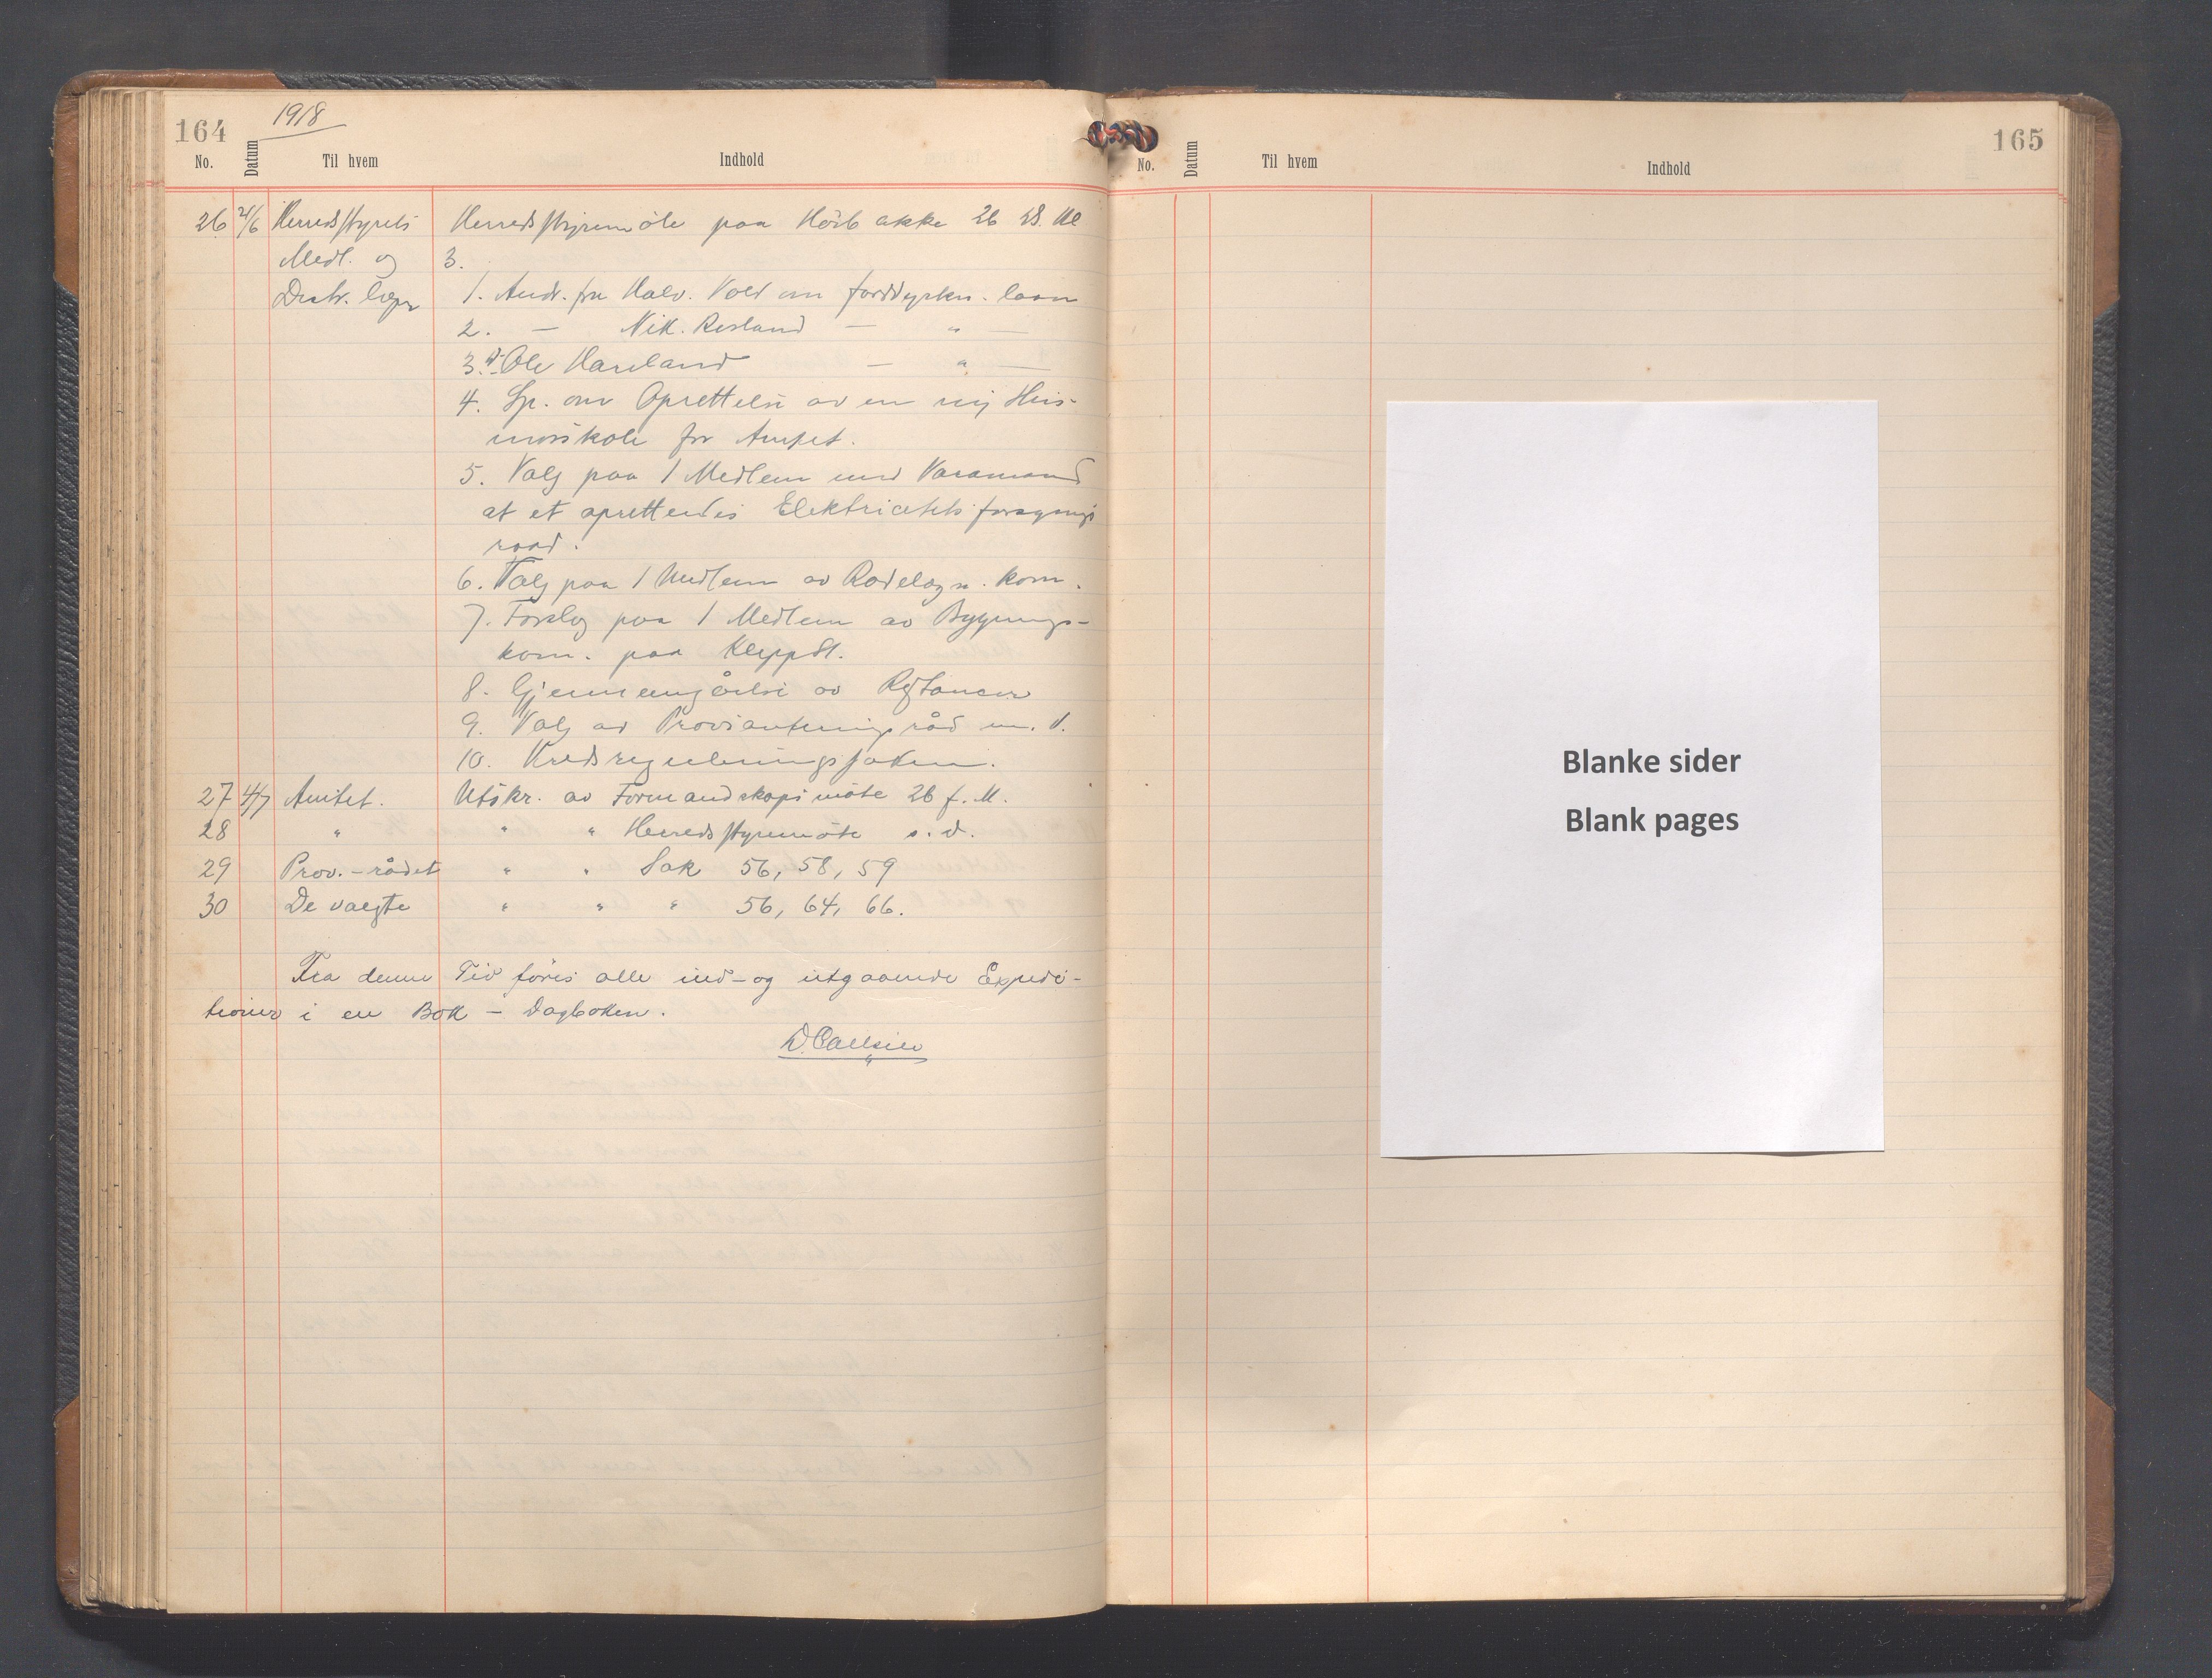 164
1918
No. Datum Til hvem Indhold
26 21/6 Herredsstyrets Herredsstyremöte paa Hörbakke 26 ds. kl
Medl. og 3.
Distr. læge 1. Andr. fra Halv. Vold om jorddyrkn. laan
2. — Nik. Resland — " —
3. Ole Hareland — " —
4. Sp. om Oprettelse av en ny Hus-
morskole for Amtet.
5. Valg paa 1 Medlem med Varamand
at et oprettendes Elektricitets forsynings
raad.
6. Valg paa 1 Medlem av Rodelægn. kom.
7. Forslag paa 1 Medlem av Bygnings-
kom. paa Kleppst.
8. Gjennemgåelse av Restancer
9. Valg av Provianteringsråd m. V.
10. Kredsreguleringssaken.
27 4/7 Amtet. Utskr. av Formandskapsmöte 26 f. M.
28 " " " Herredsstyremöte s. d.
29 Prov.-rådet " " Sak 56, 58, 59
30 De valgte " " " 56, 64, 66.
Fra denne Tid föres alle ind- og utgaaende Expedi-
tioner i en Bok - Dagboken.
165
No. Datum Til hvem Indhold
Blanke sider
Blank pages